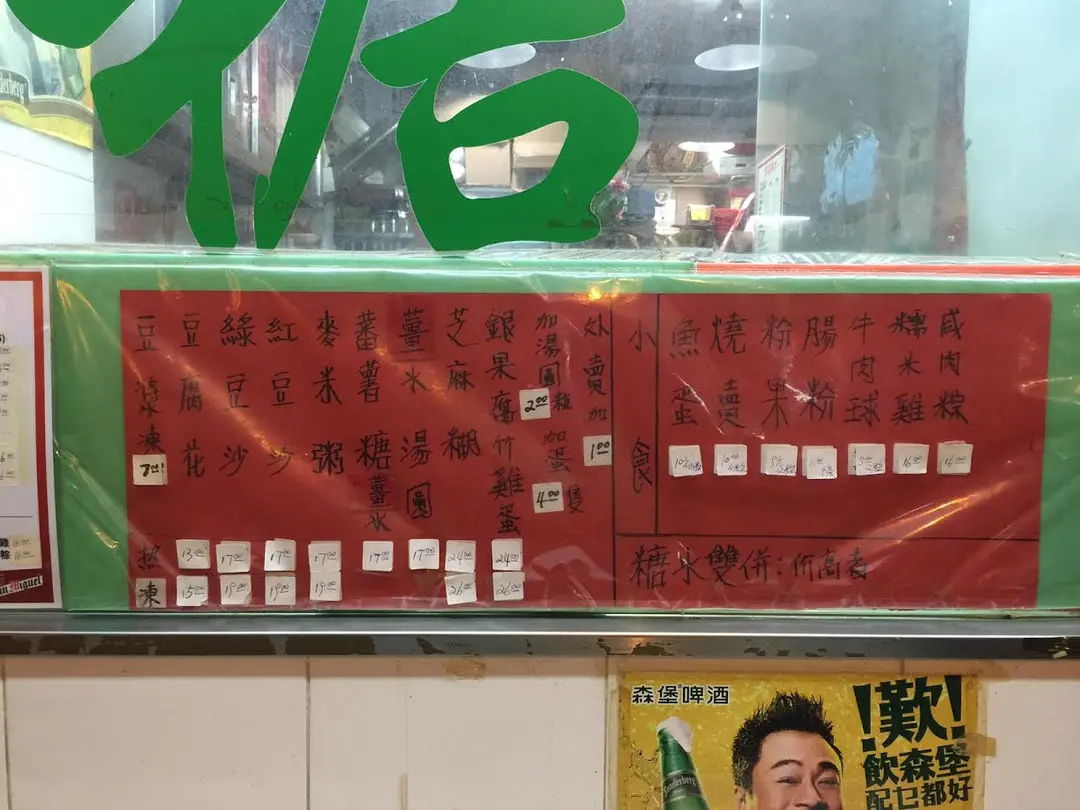 豆漿凍 7.00
豆腐花
綠豆沙
紅豆沙
麥米粥
蕃薯糖薑水
薑水湯圓
芝麻糊
銀果腐竹雞蛋
加湯圓 2.00 粒
加蛋 4.00 隻
外賣加 1.00
熱 13.00 17.00 17.00 17.00 17.00 17.00 24.00 24.00
凍 15.00 19.00 19.00 19.00 26.00 26.00
小食
魚蛋
燒賣
粉果
腸粉
牛肉球
糯米雞 16.00
咸肉粽 16.00
糖水雙併:价高者
森堡啤酒
歎!
飲森堡
配乜都好